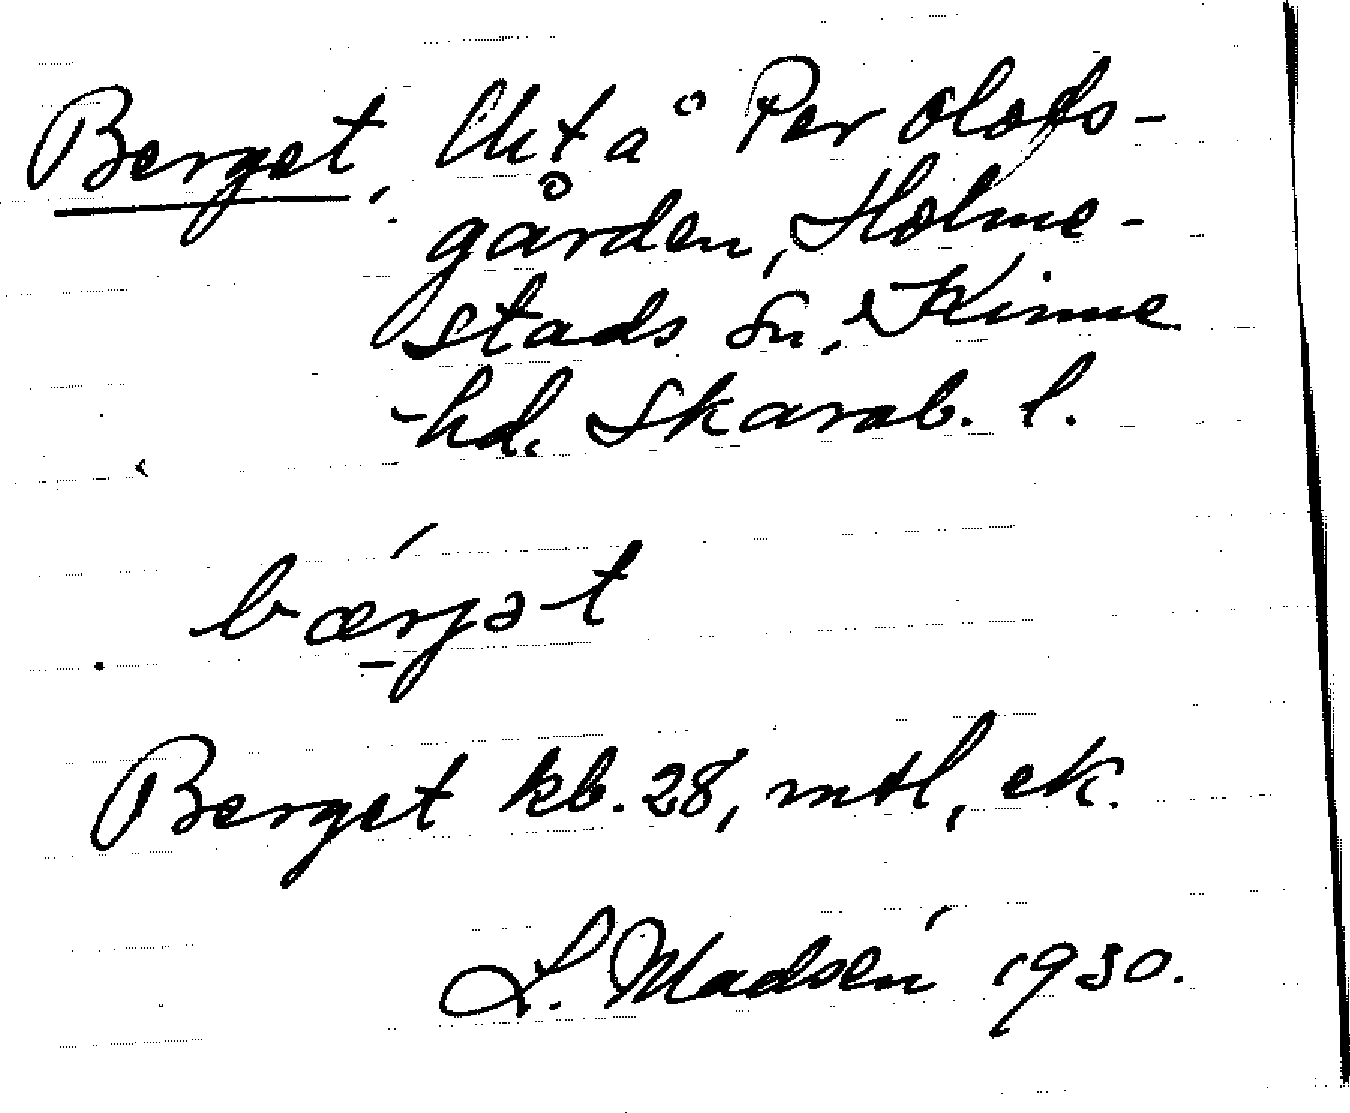 Berget, Uxt å Per Olofs-
gården, Holme-
stads sn, Kinne
hd. Skarab. l.
bærjət
Berget kb. 28, mtl, ek.
L. Madsén 1930.